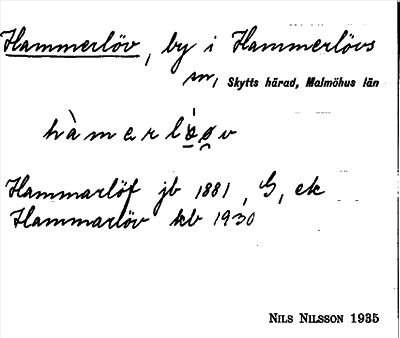 Hammerlöv, by i Hammerlövs
sn, Skytts härad, Malmöhus län
hàmerlạøv
Hammarlöf jb 1881, G, ek
Hammarlöv kb 1930
NILS NILSSON 1935